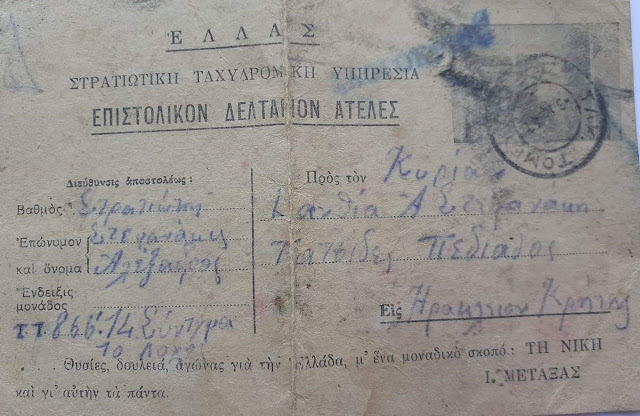 ΕΛΛΑΣ
ΣΤΡΑΤΙΩΤΙΚΗ ΤΑΧΥΔΡΟΜΙΚΗ ΥΠΗΡΕΣΙΑ
ΕΠΙΣΤΟΛΙΚΟΝ ΔΕΛΤΑΡΙΟΝ ΑΤΕΛΕΣ
Διεύθυνσις ἀποστολέως:
Βαθμὸς Στρατιώτης
Ἐπώνυμον Στεφανάκις
καὶ ὄνομα Αλέξανδρος
Ἔνδειξις
μονάδος
ττ 866. 14 Σύνταγμα
1ο Λόχος
Πρὸς τὸν Κυρίαν
Ξανθία Α Στεφανάκη
Πατσίδες Πεδιάδος
Εἰς Ηρακλειον Κρήτης
Θυσίες, δουλειά, ἀγώνας γιὰ τὴν Ἑλλάδα, μ' ἕνα μοναδικὸ σκοπό: ΤΗ ΝΙΚΗ
καὶ γι' αὐτὴν τὰ πάντα. Ι. ΜΕΤΑΞΑΣ